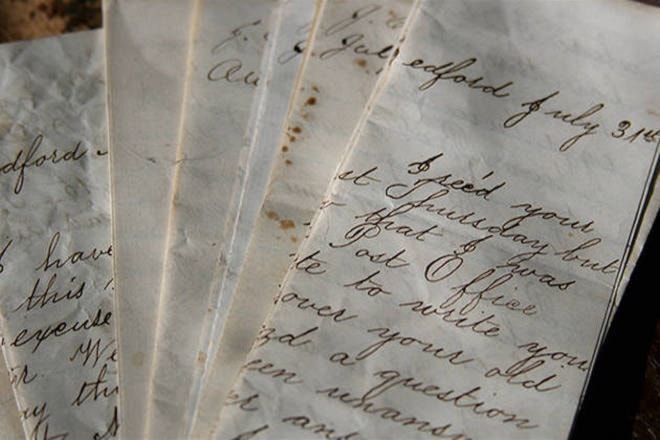 dford
I have
this
excuse
r. We
ay th
J.
Au
J.
Jul
edford July 31st
I rec'd your
st Thursday but
that I was
Post Office
te to write you
over your old
a question
een unansw
er an